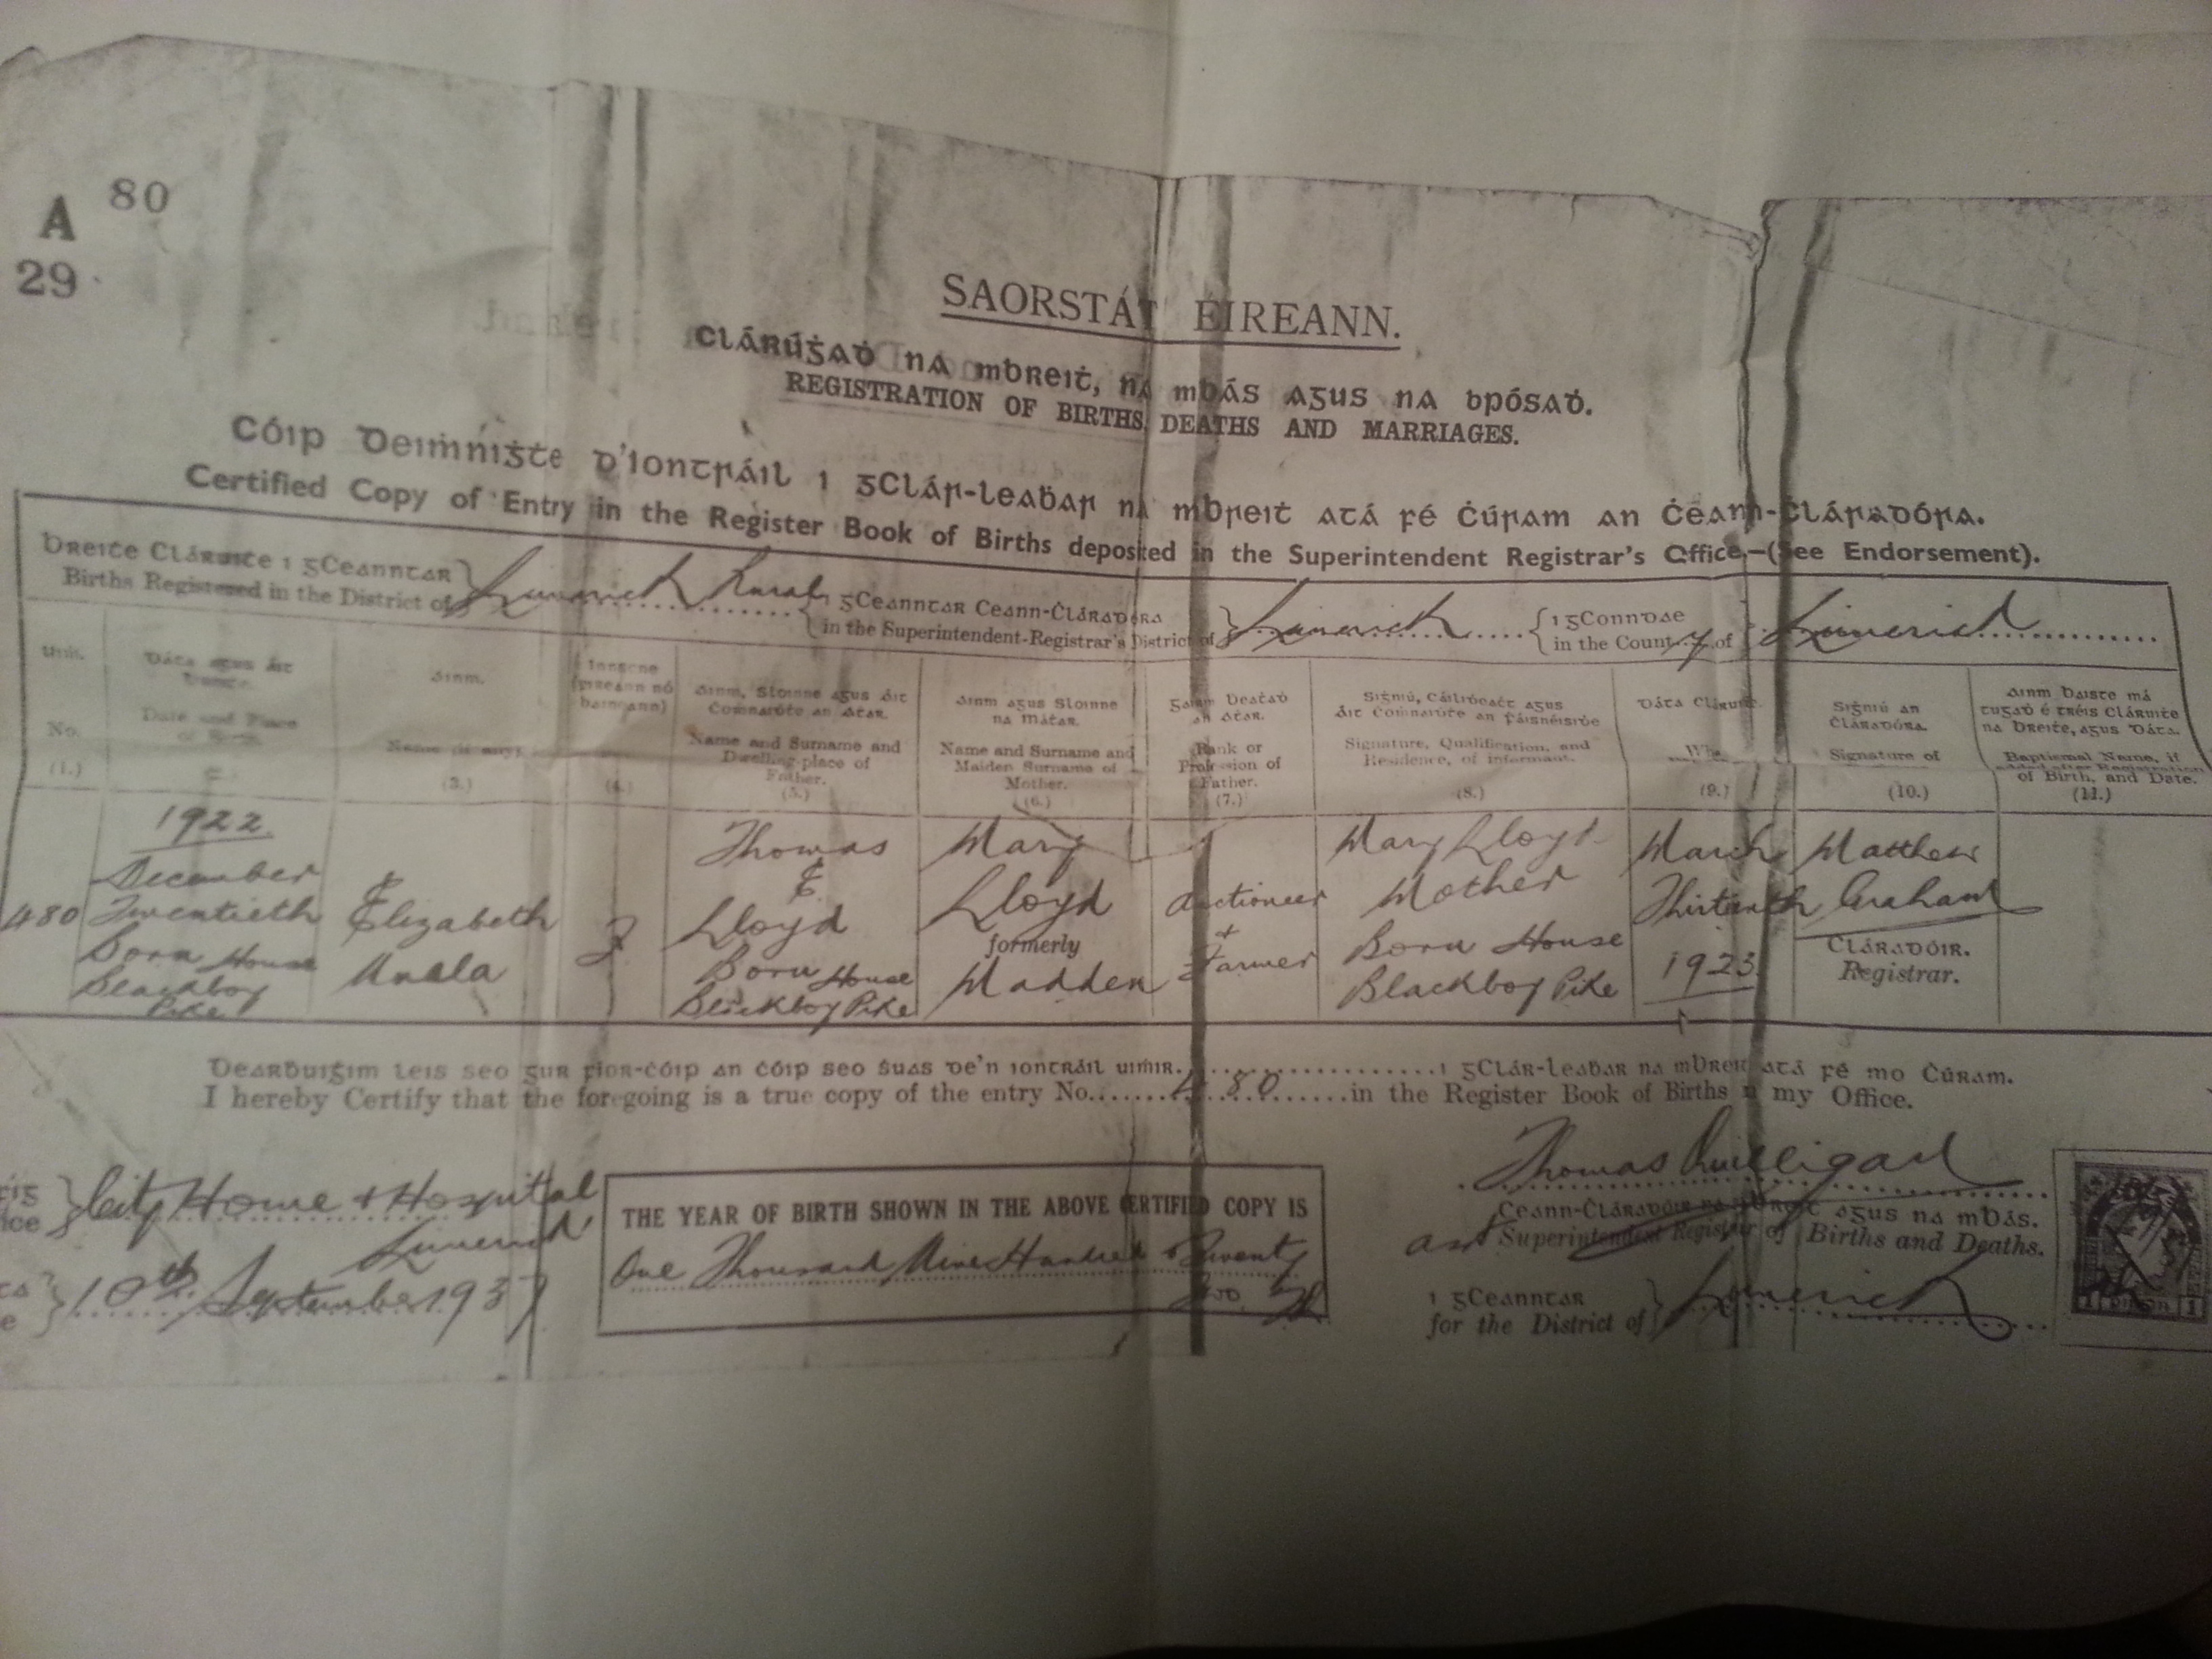 80
A
29
SAORSTÁT ÉIREANN.
Clárúġaḋ na mbreiṫ, na mbás agus na bpósaḋ.
REGISTRATION OF BIRTHS, DEATHS AND MARRIAGES.
Cóip Deiṁniġṫe d'iontráil i gClár-leaḃar na mbreiṫ atá fé ċúram an Ċeann-Ċláraḋóra.
Certified Copy of Entry in the Register Book of Births deposited in the Superintendent Registrar's Office.—(See Endorsement).
Breiṫe Cláruiṫe i gCeanntar
Births Registered in the District of Limerick Rural
i gCeanntar Ceann-Ċláraḋóra
in the Superintendent-Registrar's District of Limerick
i gConndae
in the County of Limerick
Uiṁ.
No.
(1.)
Dáta agus Áit
Date and Place
of Birth.
Ainm.
Name (if any).
(3.)
Insgne
(fireann nó
baineann)
(4.)
Ainm, Sloinne agus Áit
Coṁnaruṫe an Aṫar.
Name and Surname and
Dwelling-place of
Father.
(5.)
Ainm agus Sloinne
na Máṫar.
Name and Surname and
Maiden Surname of
Mother.
(6.)
Gairm Beaṫaḋ
an Aṫar.
Rank or
Profession of
Father.
(7.)
Signiú, Cáilíḋeaċt agus
Áit Coṁnaruṫe an Fáisnéisiḋe
Signature, Qualification, and
Residence, of Informant.
(8.)
Dáta Cláruiṫe.
(9.)
Signiú an
Ċláraḋóra.
Signature of
(10.)
Ainm Baiste má
tugaḋ é tréis Cláruiṫe
na Breiṫe, agus Dáta.
Baptismal Name, if
added after Registration
of Birth, and Date.
(11.)
480
1922
December
Twentieth
Born House
Blackboy
Pike
Elizabeth
Unala
F
Thomas
E
Lloyd
Born House
Blackboy Pike
Mary
Lloyd
formerly
Madden
Auctioneer
+
Farmer
Mary Lloyd
Mother
Born House
Blackboy Pike
March
Thirteenth
1923
Matthew
Graham
Cláraḋóir.
Registrar.
Dearḃuiġim leis seo gur fíor-ċóip an ċóip seo ṡuas de'n iontráil uiṁir i gClár-leaḃar na mBreiṫ atá fé mo ċúram.
I hereby Certify that the foregoing is a true copy of the entry No. 480 in the Register Book of Births in my Office.
City Home + Hospital
Limerick
10th September 1937
THE YEAR OF BIRTH SHOWN IN THE ABOVE CERTIFIED COPY IS
One Thousand Nine Hundred + Twenty
Two
Thomas Quilligan
Ceann-Ċláraḋóir na mBreiṫ agus na mBás.
asst Superintendent Registrar of Births and Deaths.
i gCeanntar
for the District of Limerick